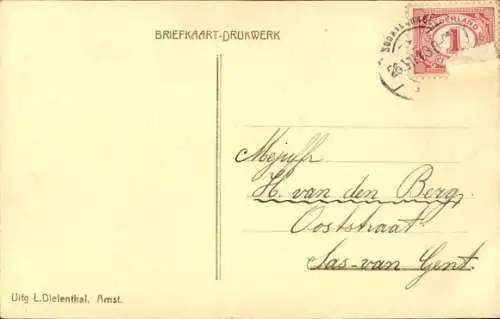 BRIEFKAART-DRUKWERK
NEDERLAND
1
Mejuffr
H. van den Berg,
Ooststraat
Sas-van Gent.
Uitg L.Dielenthal, Amst.